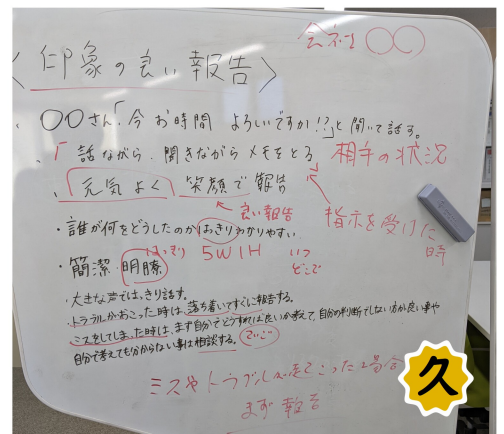 会社 〇〇
〈印象の良い報告〉
・〇〇さん「今お時間 よろしいですか!?」と聞いて話す。
・「話ながら、聞きながらメモをとる 相手の状況
「元気よく 笑顔で報告
良い報告 指示を受けた時
・誰が何をどうしたのかはっきりわかりやすい
はっきり 5W1H いつ
どこで
・簡潔・明瞭
・大きな声ではっきり話す。
・トラブルがおこった時は、落ち着いてすぐに報告する。
ミスをしてしまった時は、まず自分でどうすれば良いか考えて、自分の判断でしない方が良い事や
自分で考えても分からない事は相談する。
ミスやトラブルが起こった場合
まず報告
久